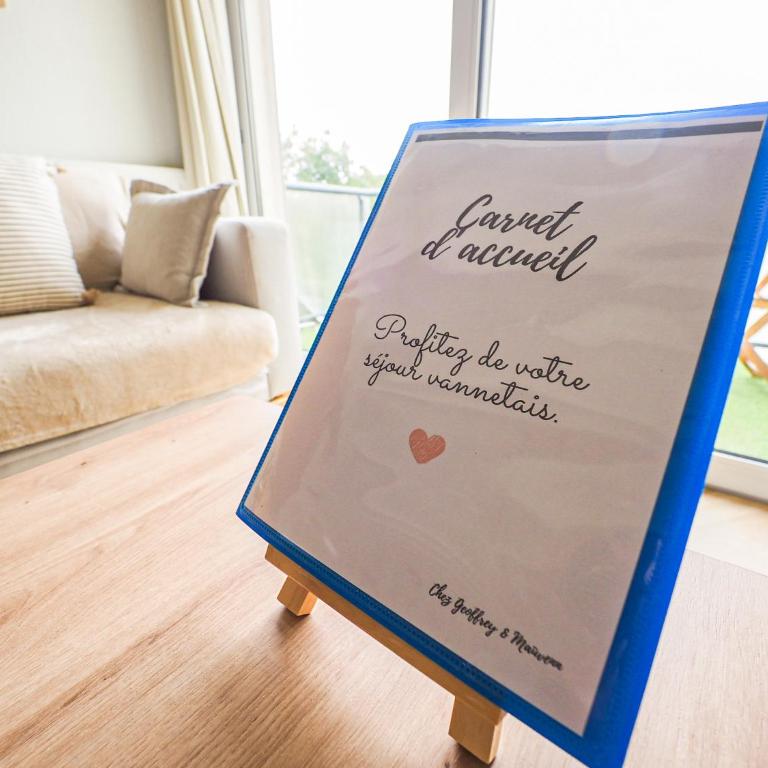 Carnet
d'accueil
Profitez de votre
séjour vannetais.
Chez Geoffrey &